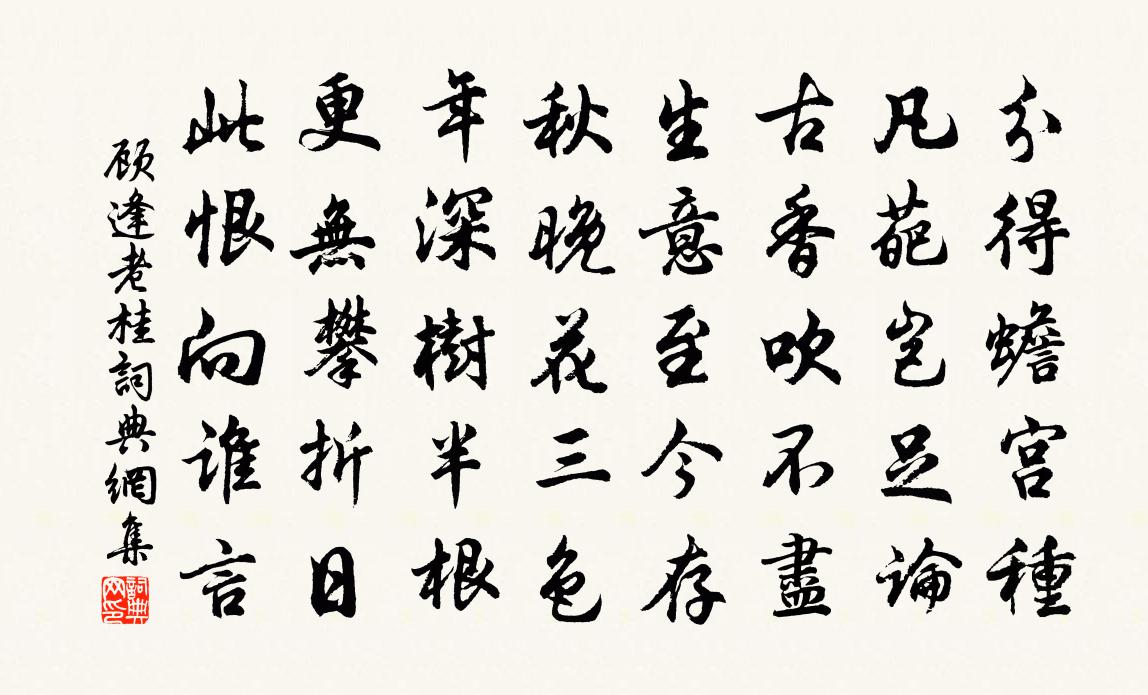 分得蟾宮種
凡葩豈足論
古香吹不盡
生意至今存
秋晚花三色
年深樹半根
更無攀折日
此恨向誰言
顾逢老桂詞典網集
詞典网印